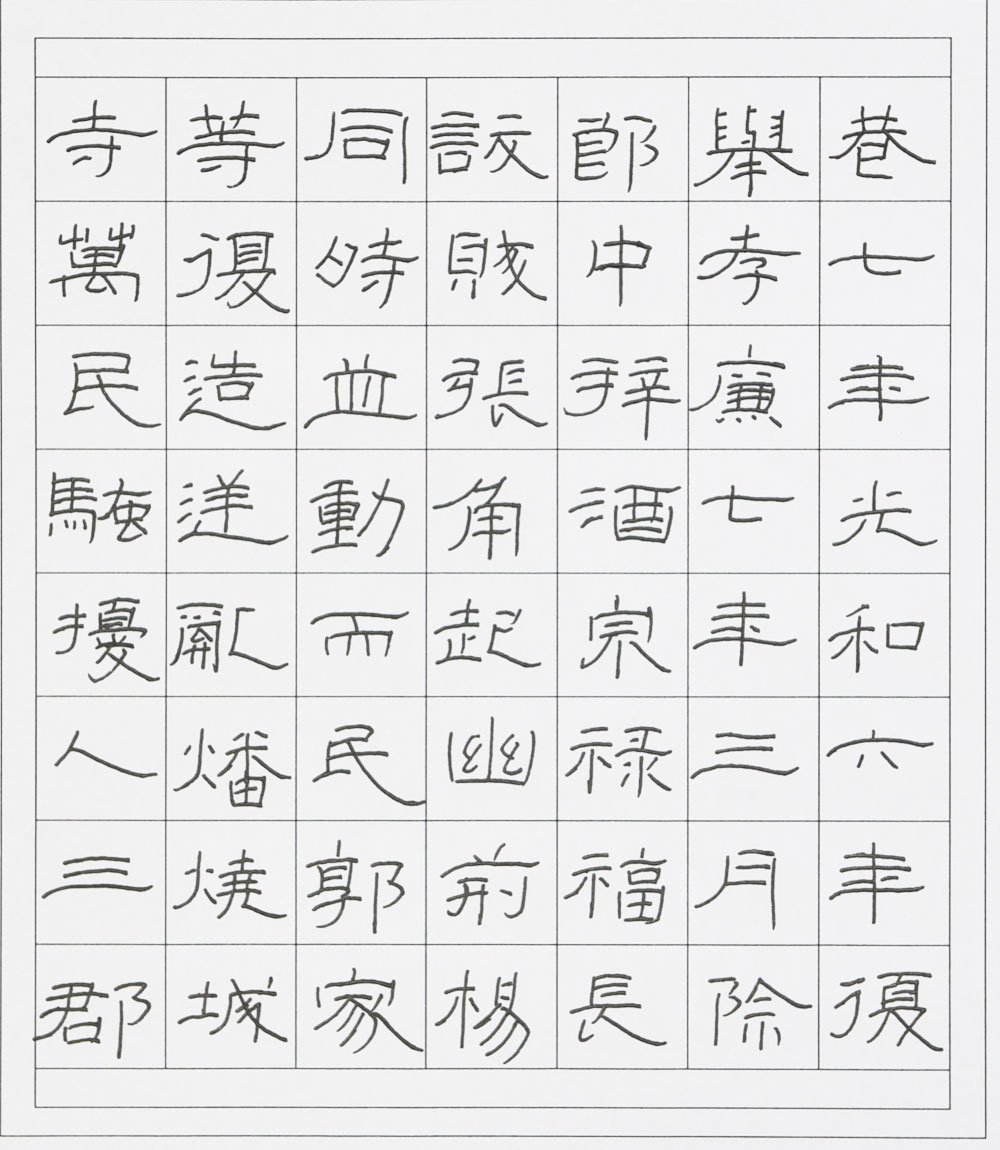 巷七年光和六年復
舉孝廉七年三月除
郎中拜酒泉祿福長
訞賊張角起幽荊楊
同時並動而民郭家
等復造逆亂燔燒城
寺萬民騷擾人三郡